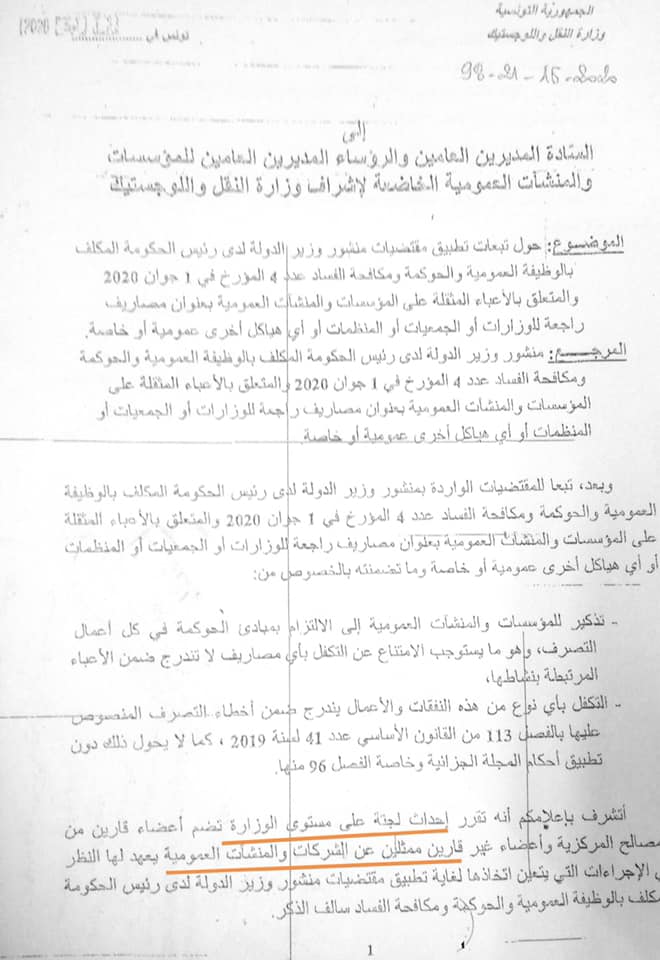 الجمهورية التونسية
وزارة النقل واللوجستيك
تونس في
98-21-15-2020
إلى
السادة المديرين العامين والرؤساء المديرين العامين للمؤسسات
والمنشآت العمومية الخاضعة لإشراف وزارة النقل واللوجستيك
الموضوع: حول تبعات تطبيق مقتضيات منشور وزير الدولة لدى رئيس الحكومة المكلف
بالوظيفة العمومية والحوكمة ومكافحة الفساد عدد 4 المؤرخ في 1 جوان 2020
والمتعلق بالأعباء المثقلة على المؤسسات والمنشآت العمومية بعنوان مصاريف
راجعة للوزارات أو الجمعيات أو المنظمات أو أي هياكل أخرى عمومية أو خاصة.
المرجع: منشور وزير الدولة لدى رئيس الحكومة المكلف بالوظيفة العمومية والحوكمة
ومكافحة الفساد عدد 4 المؤرخ في 1 جوان 2020 والمتعلق بالأعباء المثقلة على
المؤسسات والمنشآت العمومية بعنوان مصاريف راجعة للوزارات أو الجمعيات أو
المنظمات أو أي هياكل أخرى عمومية أو خاصة.
وبعد، تبعا للمقتضيات الواردة بمنشور وزير الدولة لدى رئيس الحكومة المكلف بالوظيفة
العمومية والحوكمة ومكافحة الفساد عدد 4 المؤرخ في 1 جوان 2020 والمتعلق بالأعباء المثقلة
على المؤسسات والمنشآت العمومية بعنوان مصاريف راجعة للوزارات أو الجمعيات أو المنظمات
أو أي هياكل أخرى عمومية أو خاصة وما تضمنته بالخصوص من:
- تذكير للمؤسسات والمنشآت العمومية إلى الالتزام بمبادئ الحوكمة في كل أعمال
التصرف، وهو ما يستوجب الامتناع عن التكفل بأي مصاريف لا تندرج ضمن الأعباء
المرتبطة بنشاطها،
- التكفل بأي نوع من هذه النفقات والأعمال يندرج ضمن أخطاء التصرف المنصوص
عليها بالفصل 113 من القانون الأساسي عدد 41 لسنة 2019 ، كما لا يحول ذلك دون
تطبيق أحكام المجلة الجزائية وخاصة الفصل 96 منها.
أتشرف بإعلامكم أنه تقرر إحداث لجنة على مستوى الوزارة تضم أعضاء قارين من
مصالح المركزية وأعضاء غير قارين ممثلين عن الشركات والمنشآت العمومية يعهد لها النظر
ي الإجراءات التي يتعين اتخاذها لغاية تطبيق مقتضيات منشور وزير الدولة لدى رئيس الحكومة
مكلف بالوظيفة العمومية والحوكمة ومكافحة الفساد سالف الذكر.
1